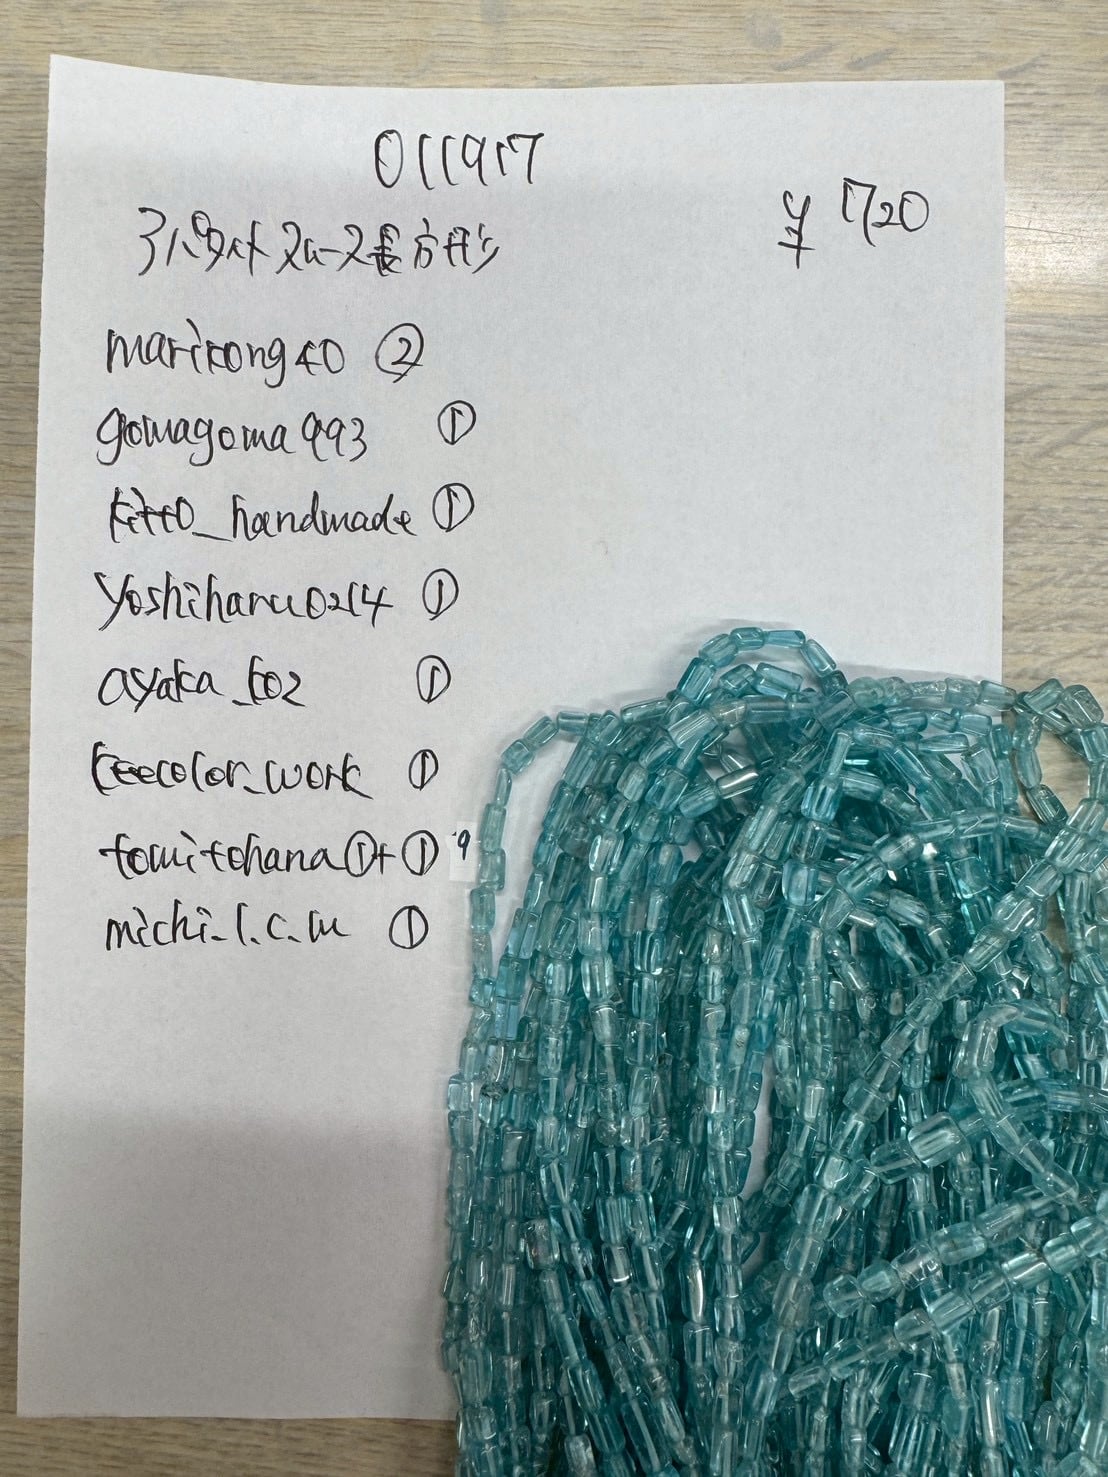 011917
アパタイトスムース長方形
¥1720
marikong40 ②
gomagoma993 ①
kitto_handmade ①
yoshiharu0214 ①
ayaka_k02 ①
keecolor_work ①
tomitohana①+①
9
michi_l.c.m ①